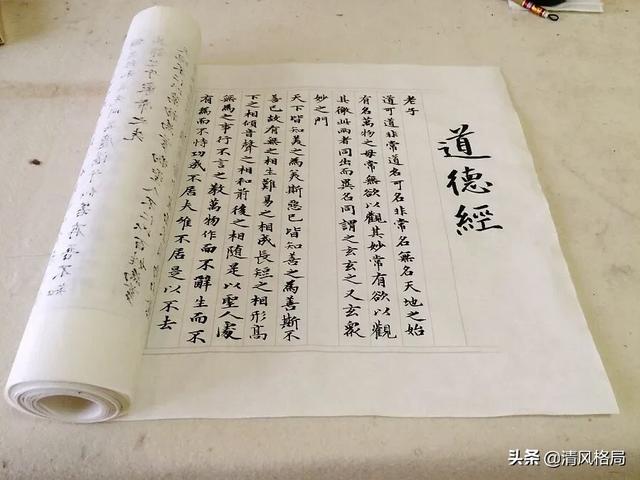 道德經
老子
道可道非常道名可名非常名無名天地之始
有名萬物之母常無欲以觀其妙常有欲以觀
其徼此兩者同出而異名同謂之玄玄之又玄衆
妙之門
天下皆知美之為美斯惡已皆知善之為善斯不
善已故有無之相生難易之相成長短之相形高
下之相傾音聲之相和前後之相随是以聖人處
無為之事行不言之教萬物作而不辭生而不
有為而不恃功成不居夫唯不居是以不去
头条 @清风格局